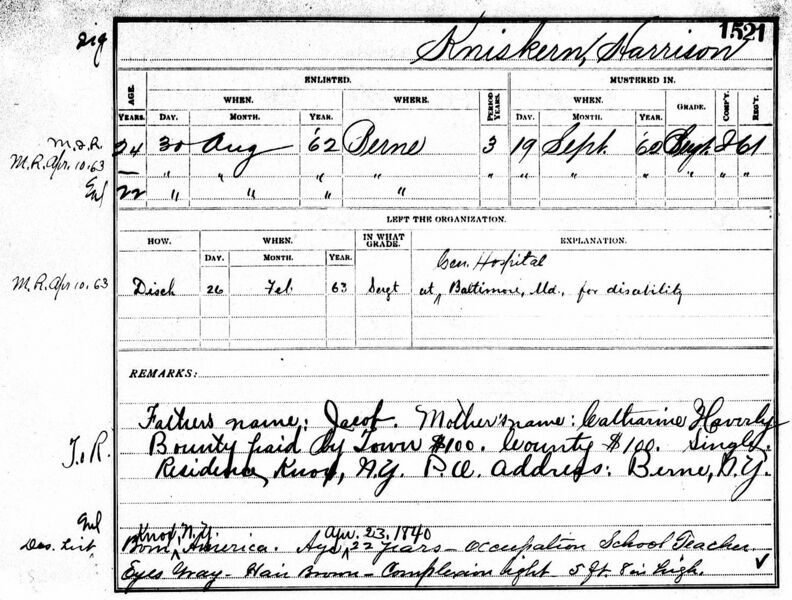 1521
sig Kniskern, Harrison
ENLISTED. MUSTERED IN.
AGE. WHEN. WHERE. PERIOD WHEN. GRADE. COMP'Y. REG'T.
YEARS. DAY. MONTH. YEAR. YEARS. DAY. MONTH. YEAR.
24 30 Aug '62 Berne 3 19 Sept. '62 Sergt. 61
M. R. Apr. 10. 63 — " " " " " " " " " " "
Enl 22 " " " "
LEFT THE ORGANIZATION.
HOW. WHEN. IN WHAT GRADE. EXPLANATION.
DAY. MONTH. YEAR.
Gen. Hospital
M. R. Apr 10. 63 Disch 26 Feb. 63 Sergt at ^ Baltimore, Md., for disability
REMARKS:
Fathers name: Jacob. Mother's name: Catharine Haverly
T. R. Bounty paid by Town $100. County $100. Single.
Residence, Knox, N.Y. P.O. Address: Berne, N.Y.
Enl Knox, N.Y. Apr. 23, 1840
Des. List Born ^ America. Age ^ 22 years — Occupation School Teacher
Eyes Gray — Hair Brown — Complexion light — 5 ft. 8 in high. ✓